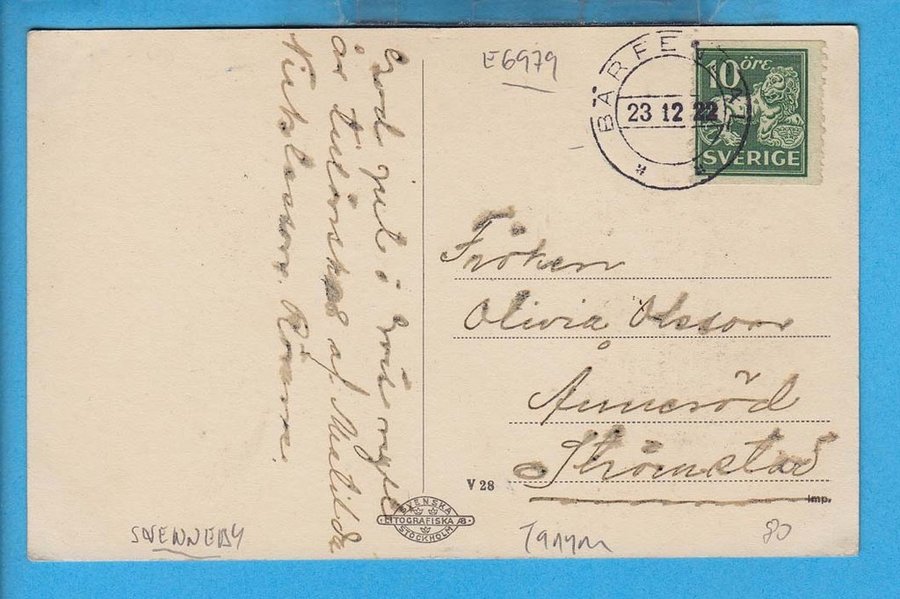 E6979
BÄRFE
23 12 22
10 ÖRE
SVERIGE
God jul o Gott nytt
år tillönskas af Matilda
Niklasson.
Fröken
Olivia Olsson
Anneröd
Strömstad
V 28
Imp.
SVENSKA
LITOGRAFISKA AB
STOCKHOLM
SVENNEBY
Tanum
80